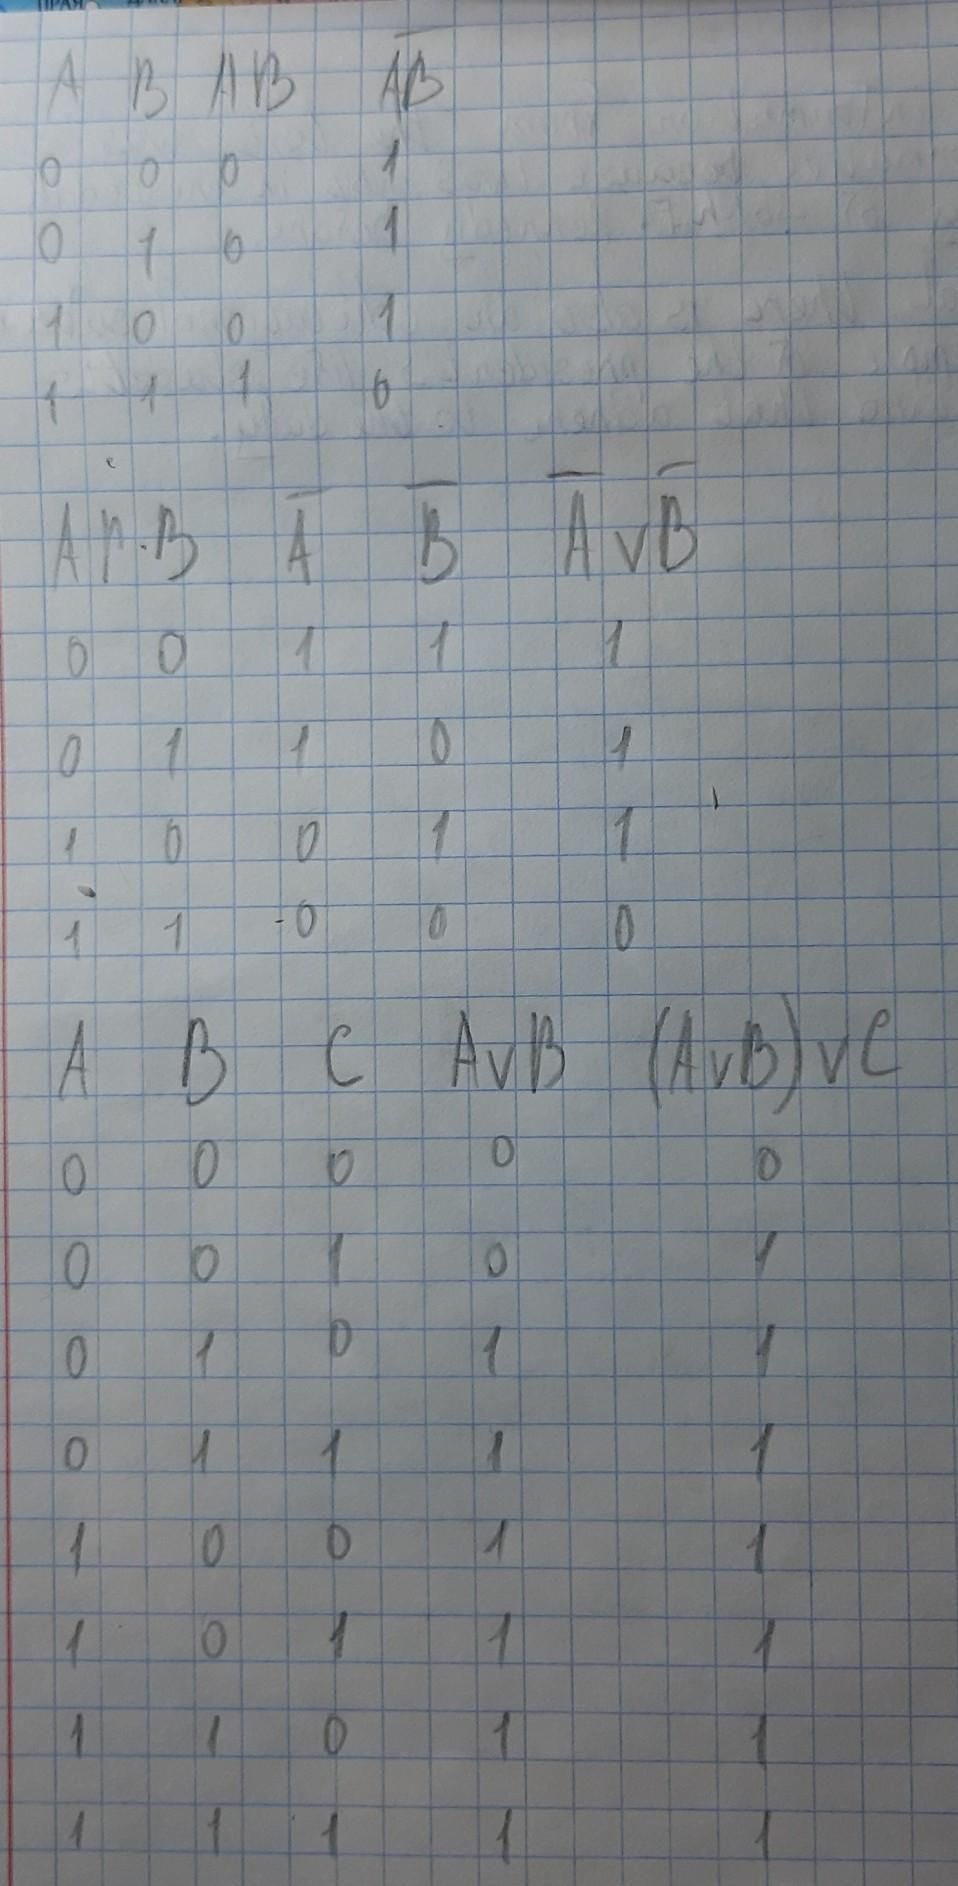 A B AB A̅B̅
0 0 0 1
0 1 0 1
1 0 0 1
1 1 1 0
A B A̅ B̅ A̅ ∨ B̅
0 0 1 1 1
0 1 1 0 1
1 0 0 1 1
1 1 0 0 0
A B C A∨B (A∨B)∨C
0 0 0 0 0
0 0 1 0 1
0 1 0 1 1
0 1 1 1 1
1 0 0 1 1
1 0 1 1 1
1 1 0 1 1
1 1 1 1 1